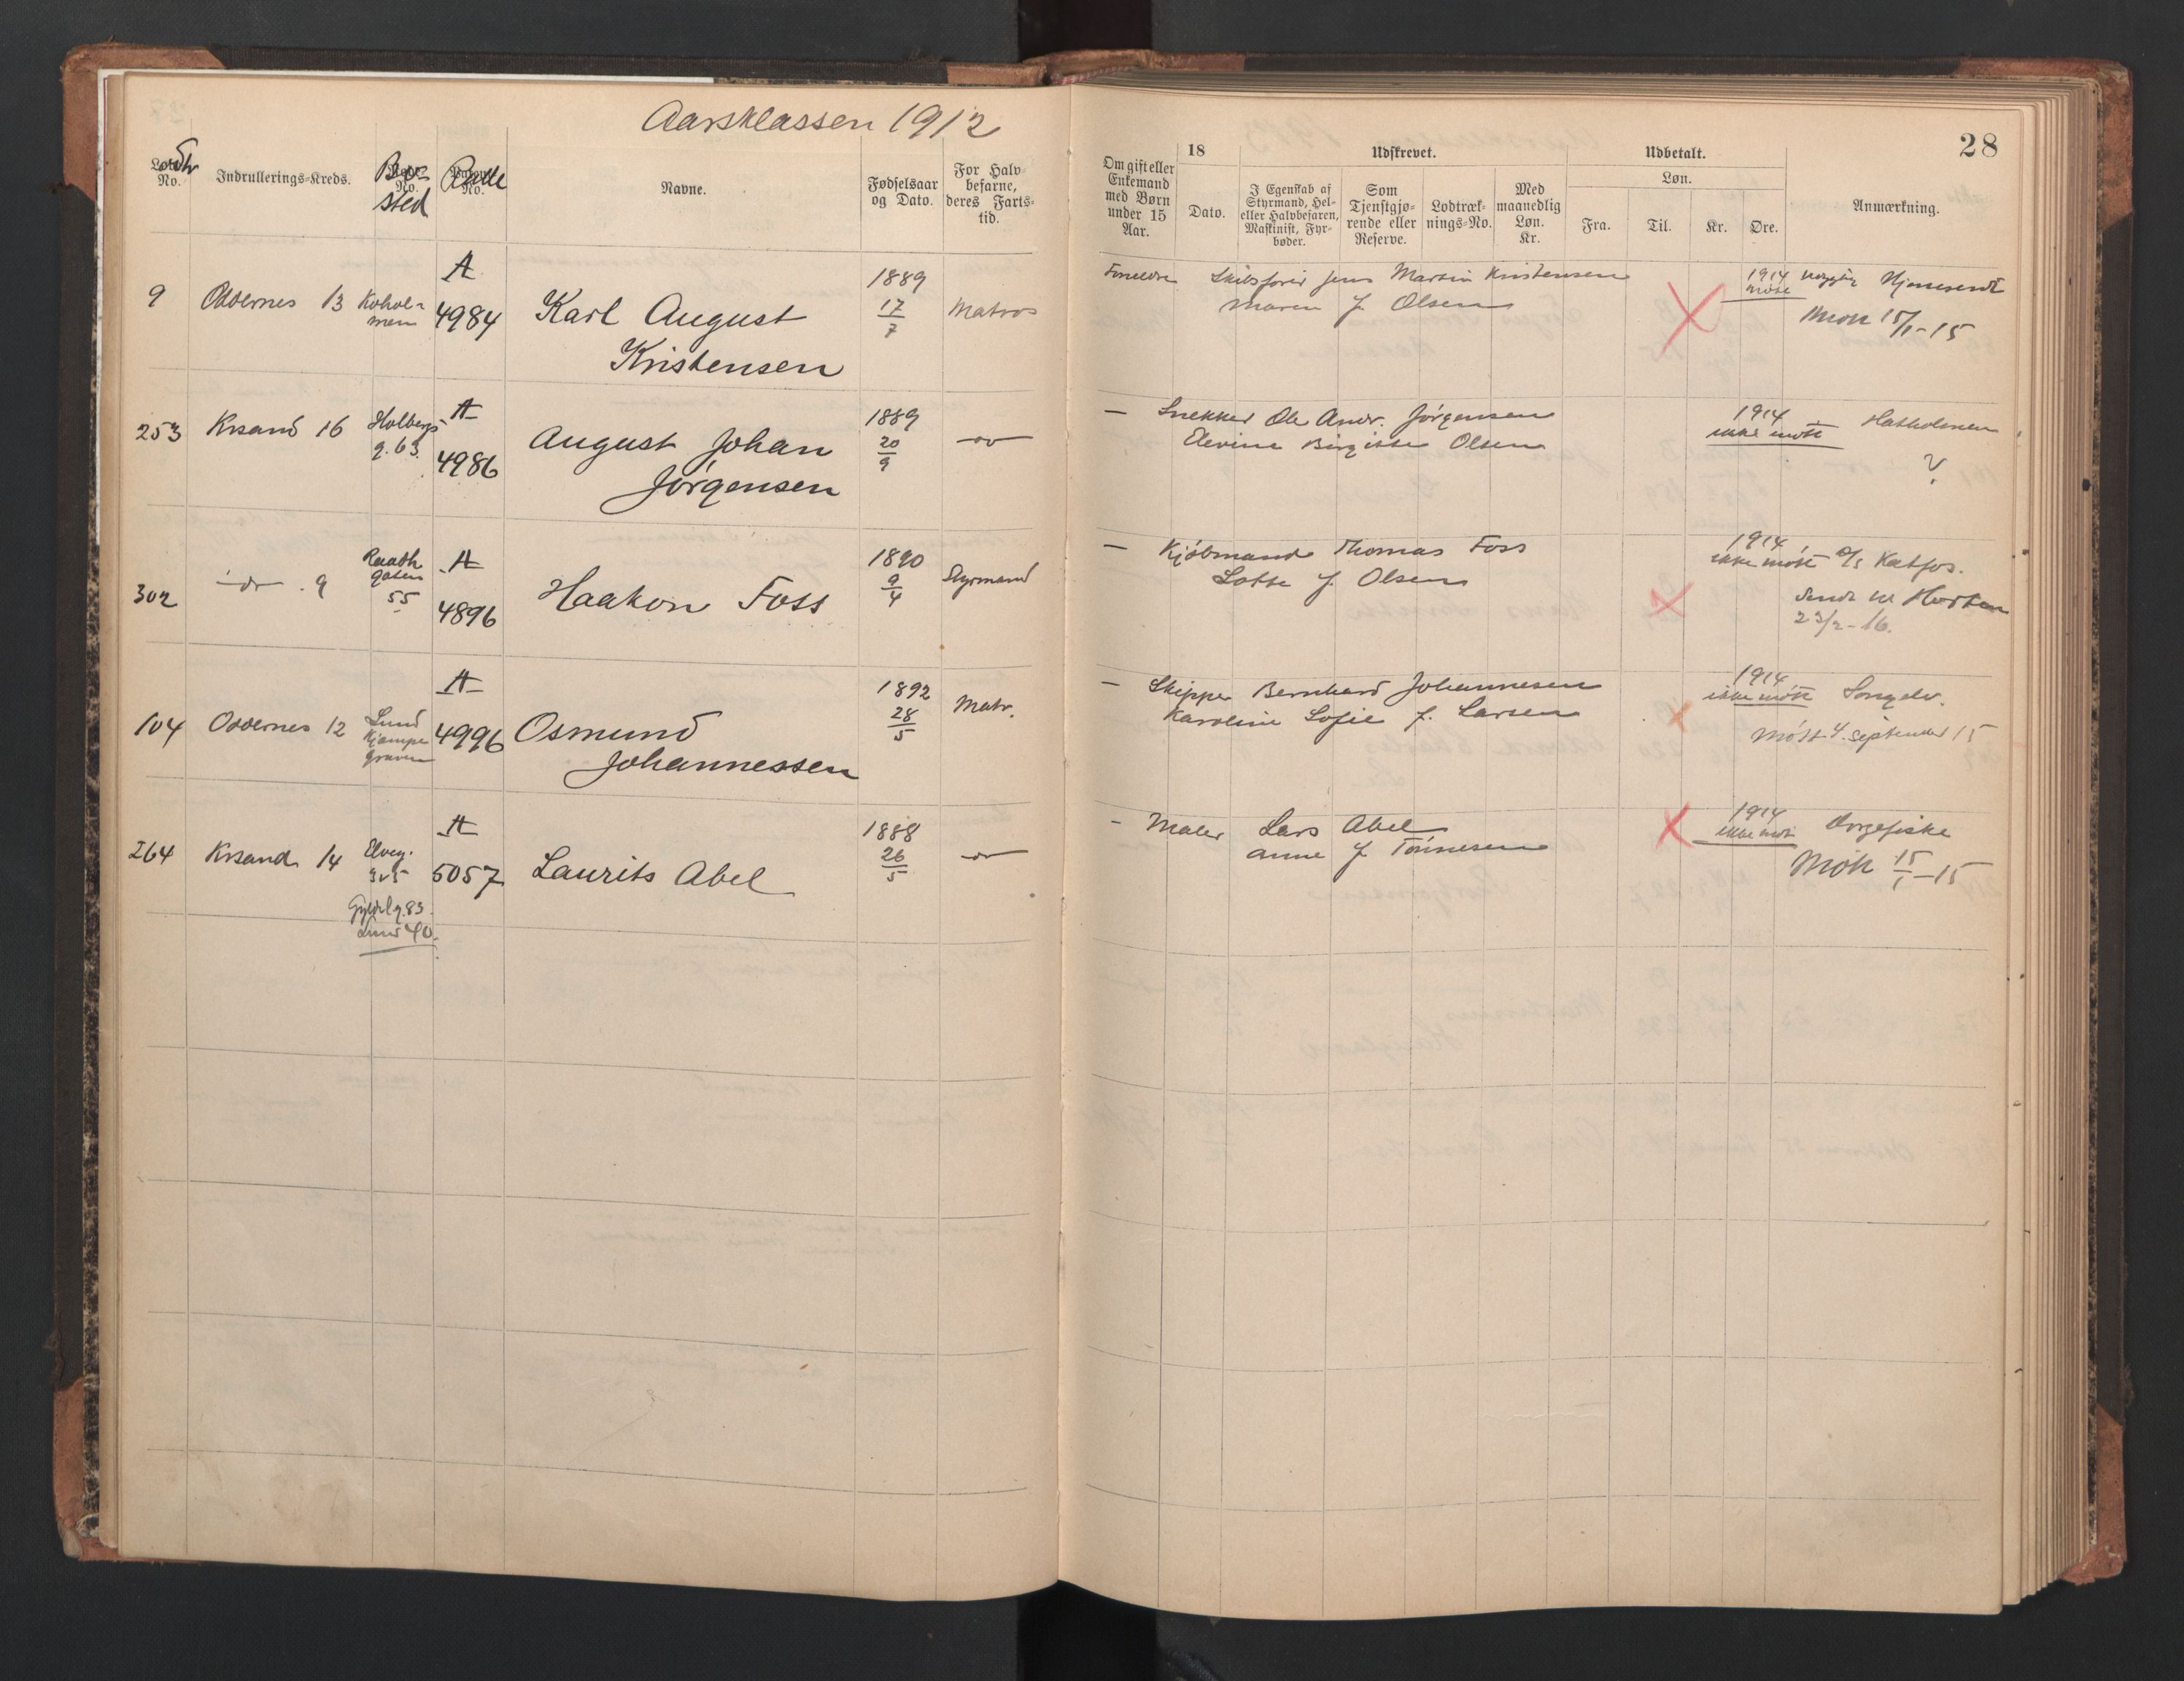 Aarsklassen 1912
28
Lodtr No.
Indrullerings-Kreds.
Bo-sted
No.
Rulle
No.
Navne.
Fødselsaar og Dato.
For Halvbefarne, deres Fartstid.
Om gift eller Enkemand med Børn under 15 Aar.
18
Dato.
Udskrevet.
I Egenskab af Styrmand, Hel- eller Halvbefaren, Maskinist, Fyrbøder.
Som Tjenstgjørende eller Reserve.
Lodtræknings-No.
Med maanedlig Løn. Kr.
Udbetalt.
Løn.
Fra.
Til.
Kr.
Øre.
Anmærkning.
9 Oddernes 13 Kohol-men A 4984 Karl August Kristensen 1889 17/7 Matros
Foreldre Skibsfører Jens Martin Kristensen
Maren f. Olsen
1914 Hjemsendt
Mött 15/1-15
253 Krsand 16 Holbergs g. 63. A 4986 August Johan Jørgensen 1889 20/9 -do-
— Snekker Ole Andr. Jørgensen
Elevine Birgitte Olsen
1914 ikke mött Hatholmen
?
302 -do- 9 Raadh gaten 55 A 4896 Haakon Foss 1890 9/4 Styrmand
— Kjøbmand Thomas Foss
Lotte f. Olsen
1914 ikke mött D/s Katfos.
Sendt til Horten
23/2-16.
104 Oddernes 12 Lund Kjempe graven A 4996 Osmund Johannessen 1892 28/5 Matr.
— Skipper Bernhard Johannesen
Karoline Sofie f. Larsen
1914 ikke mött Songelv.
Mött 4. september 15
264 Krsand 14 Elveg. A 5057 Laurits Abel 1888 26/5 -do-
Gyldlg. 83.
Lund 40.
- Maler Lars Abel
Anne f Tønnesen
1914 ikke mött Dorgefiske
Mött 15/1-15